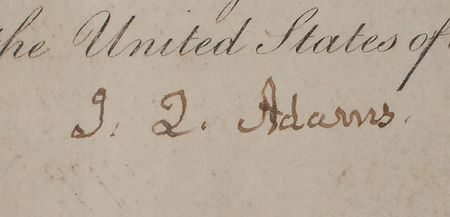 the United States of
J. Q. Adams.